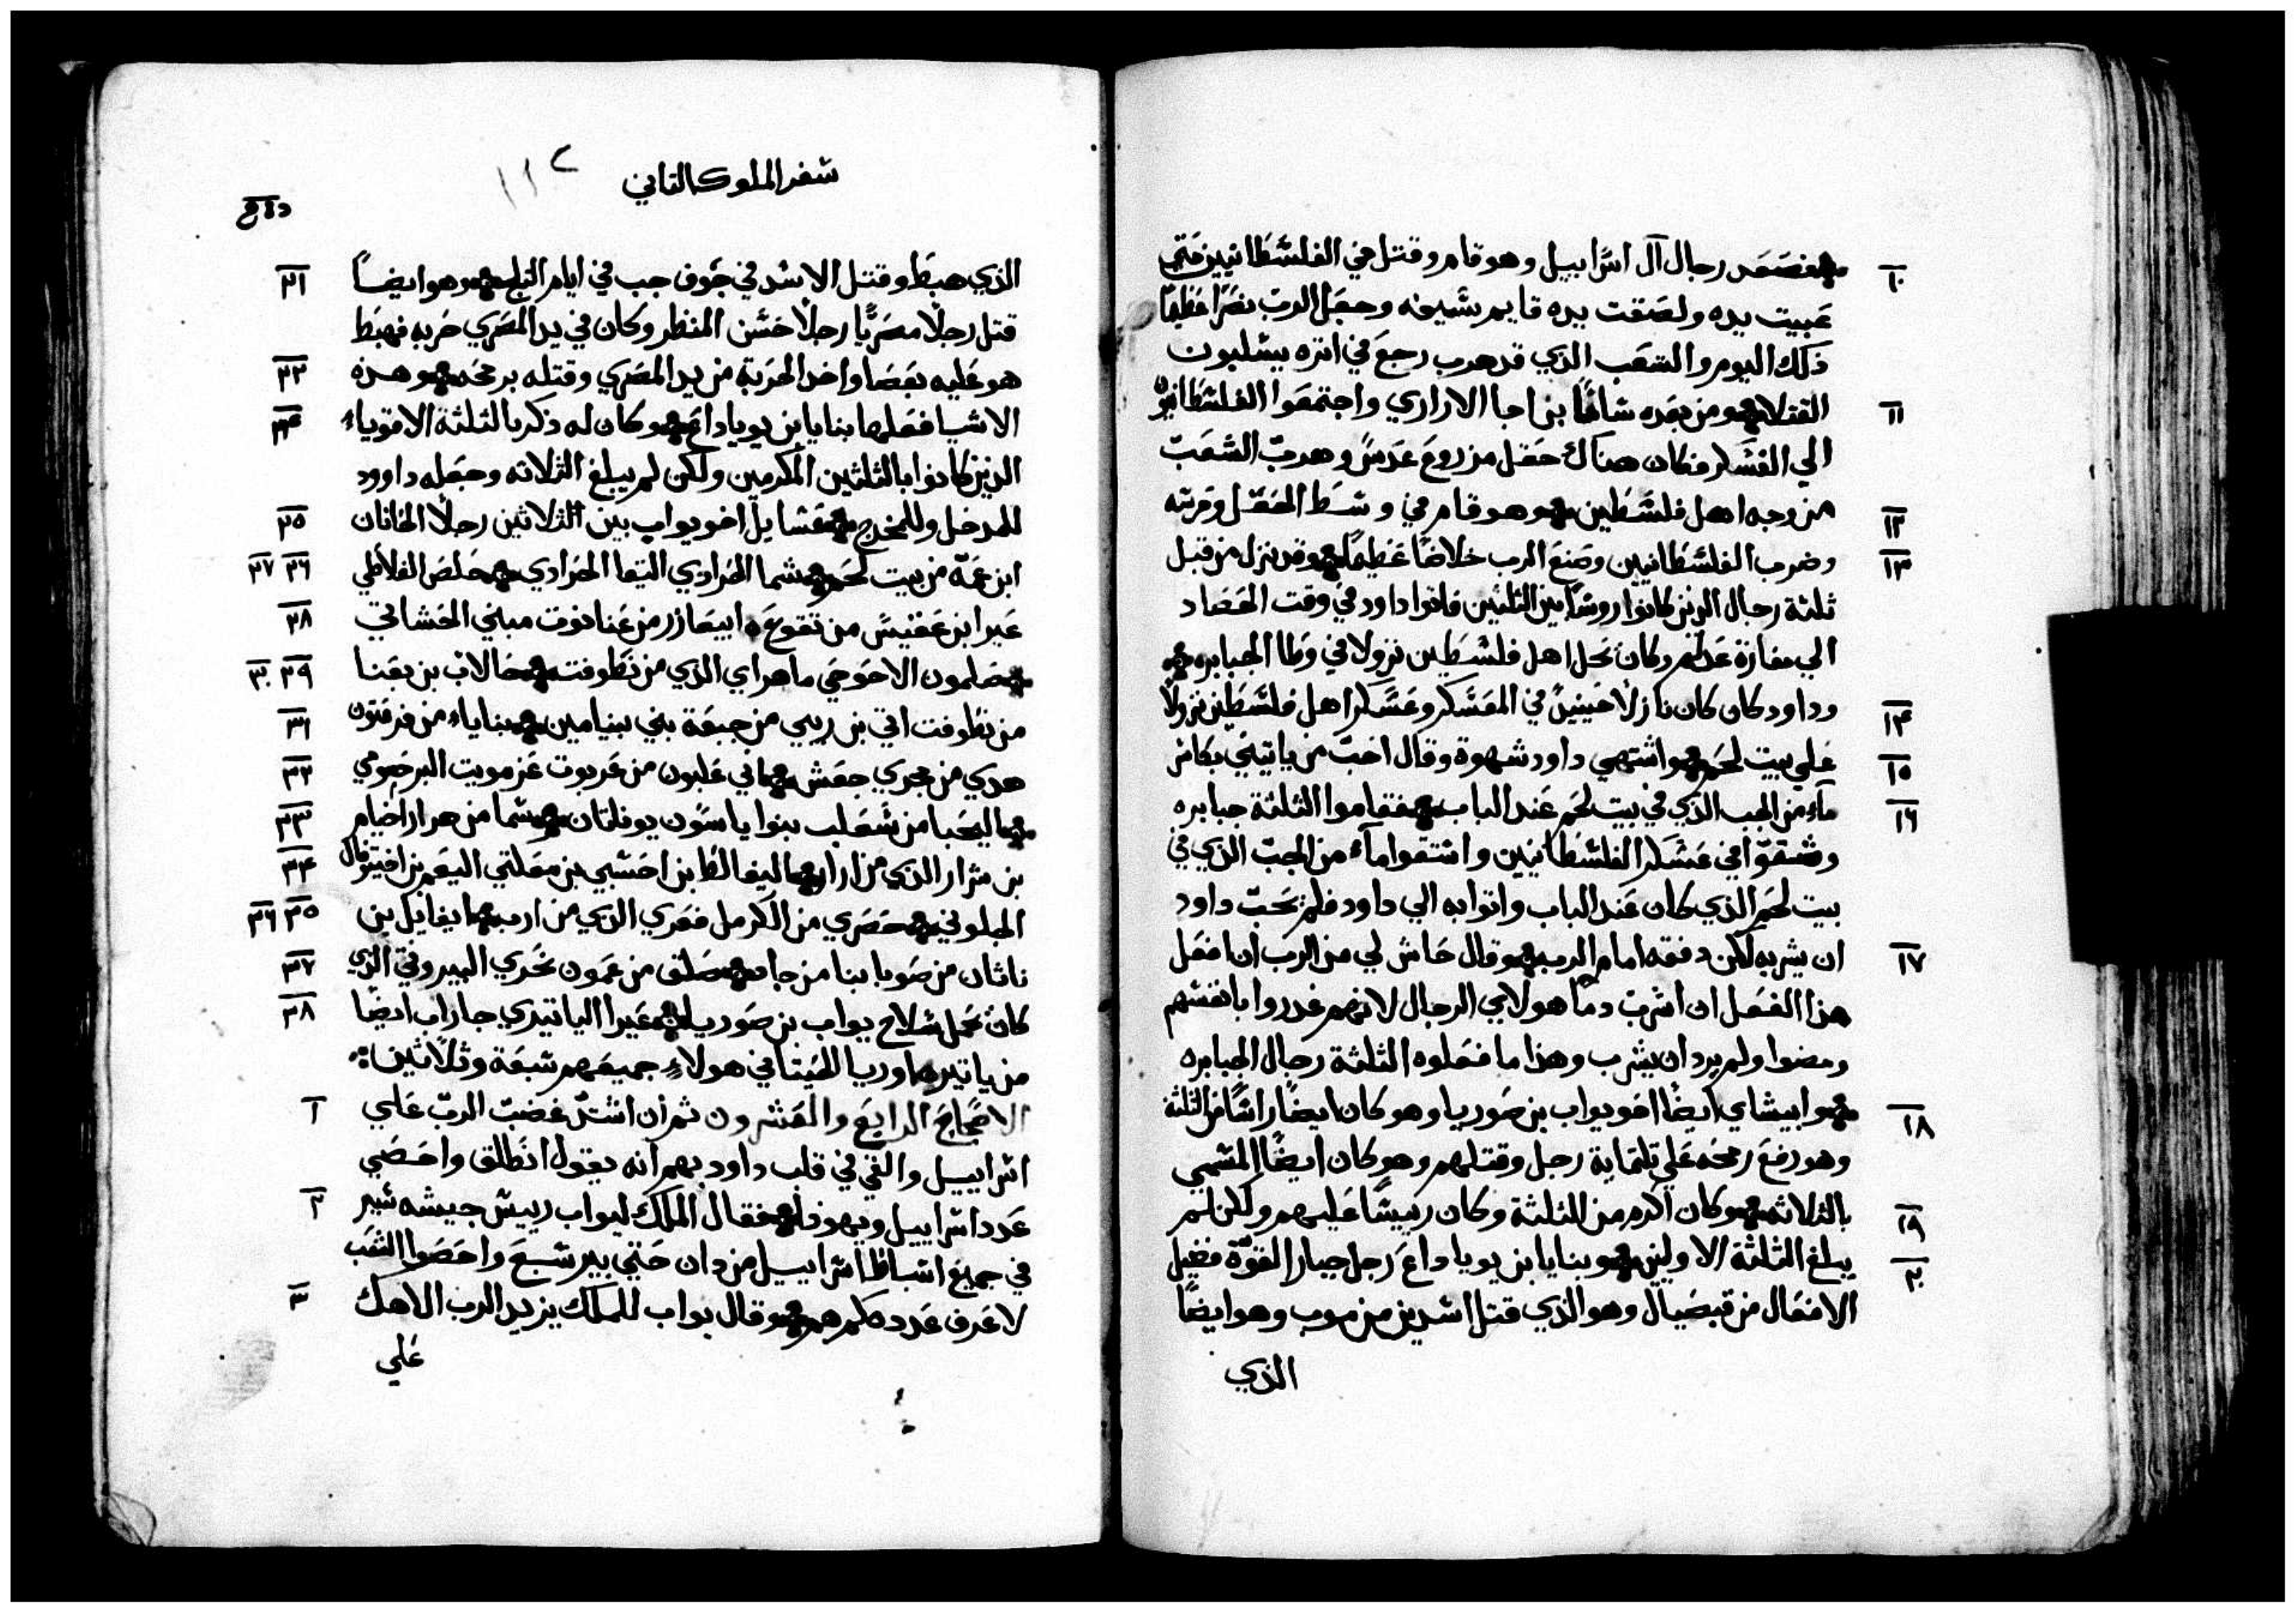 فصعد رجال آل اسراييل وهو قام وقتل في الفلسطانيين حتي
١٠
عييت يده ولصقت يده قايم بسيفه وجعل الرب نصرًا عظيمًا
ذلك اليوم والشعب الذي قد هرب رجع في اتره يسلبون
القتلا ومن بعده شاما بن اجا الاراري واجتمعوا الفلسطانيون
١١
الي العسكر فكان هناك حقل مزروع عدس وهرب الشعب
من وجه اهل فلسطين وهو قام في وسط الحقل وحرته
١٢
وضرب الفلسطانيين وصنع الرب خلاصًا عظيمًا وقد نزل من قبل
١٣
ثلثة رجال الذين كانوا روسًا بين الثلثين فاتوا داود في وقت الحصاد
الي مغارة عدلم وكان محل اهل فلسطين نزولا في وطا الجبابره
وداود كان كان نازلًا حينيذ في المعسكر وعسكر اهل فلسطين نزولًا
١٤
علي بيت لحم واشتهي داود شهوة وقال احب من ياتيني بكاس
١٥
مآء من الجب الذي في بيت لحم عند الباب فقاموا الثلثة جبابره
١٦
وشقوا في عسكر الفلسطانيين واستقوا مآء من الجب الذي في
بيت لحم الذي كان عند الباب واتوا به الي داود فلم يحب داود
ان يشربه لكن دفقه امام الرب وقال حاش لي من الرب ان افعل
١٧
هذا الفعل ان اشرب دم هولاي الرجال لانهم غدروا بانفسهم
ومضوا ولم يرد ان يشرب وهذا ما فعلوه الثلثة رجال الجبابره
وابيشاي ايضًا اخو يواب بن صوريا وهو كان ايضًا راسًا من الثلثة
١٨
وهو رفع رمحه علي تلتماية رجل وقتلهم وهو كان ايضًا المسمي
بالثلاثه وكان اكرم من الثلثة وكان رييسًا عليهم ولكن لم
١٩
يبلغ الثلثة الاولين وبنايا ابن يوياداع رجل جبار القوة فعيل
٢٠
الافعال من قبصيال وهو الذي قتل اسدين من موب وهو ايضًا
الذي
سفر الملوك التاني
١١٢
الذي هبط وقتل الاسد في جوف جب في ايام الثلج وهو ايضًا
٢١
قتل رجلًا مصريًا رجلًا حسن المنظر وكان في يد المصري حربه فهبط
هو عليه بعصا واخد الحربة من يد المصري وقتله برمحه وهده
٢٢
الاشيا فعلها بنايا بن يوياداع وكان له ذكر بالثلثة الاقوياء
٢٣
الذين كانوا بالثلثين المكرمين ولكن لم يبلغ الثلاثه وجعله داوود
للمدخل وللمخرج عسايل اخو يواب بين الثلاثين رجلًا الخانان
٢٥
ابن عمه من بيت لحم شما الحرادي اليقا الحرادي حلص الفلاطي
٢٦ ٢٧
عيرا بن عقنيس من تقوع ابيعازر من عناتوت مبني الحشاتي
٢٨
صلمون الاحوحي ماهراي الذي من نطوفته حالاب بن بعنا
٢٩ ٣٠
من نطوفت اتي بن ريبي من جبعة بني بنيامين بناياء من فرعتون
٣١
هدي من مجري جعش ابي علبون من عربوت عزمويت البرحومي
٣٢
اليحبا من شعلب بنوا ياسون يوناتان شما من هرار اخيام
٣٣
بن شرار الذي من ارار اليفالط ابن احسبي بن معكتي اليعم بن اخيتوفال
٣٤
الجلوني حصري من الكرمل فعري الذي من ارب ايغايل بن
٣٥ ٣٦
ناثان من صوبا بنا من جاد صلق من عمون نحري البيروتي الذي
٣٧
كان يحمل سلاح يواب بن صوريا عيرا الياتيري جاراب ايضًا
٣٨
من ياتير اوريا الحيتاني هولاءِ جميعهم سبعة وثلاثين
الاصحاح الرابع والعشرون ثم ان اشتد غضب الرب علي
١
اسراييل والقي في قلب داود بهم انه يقول انطلق واحصي
عدد اسراييل ويهوذا فقال الملك ليواب رييس جيشه سير
٢
في جميع اسباط اسراييل من دان حتي بير سبع واحصوا الشعب
لاعرف عدد كلهم وقال يواب للملك يزيد الرب الاهك
٣
علي